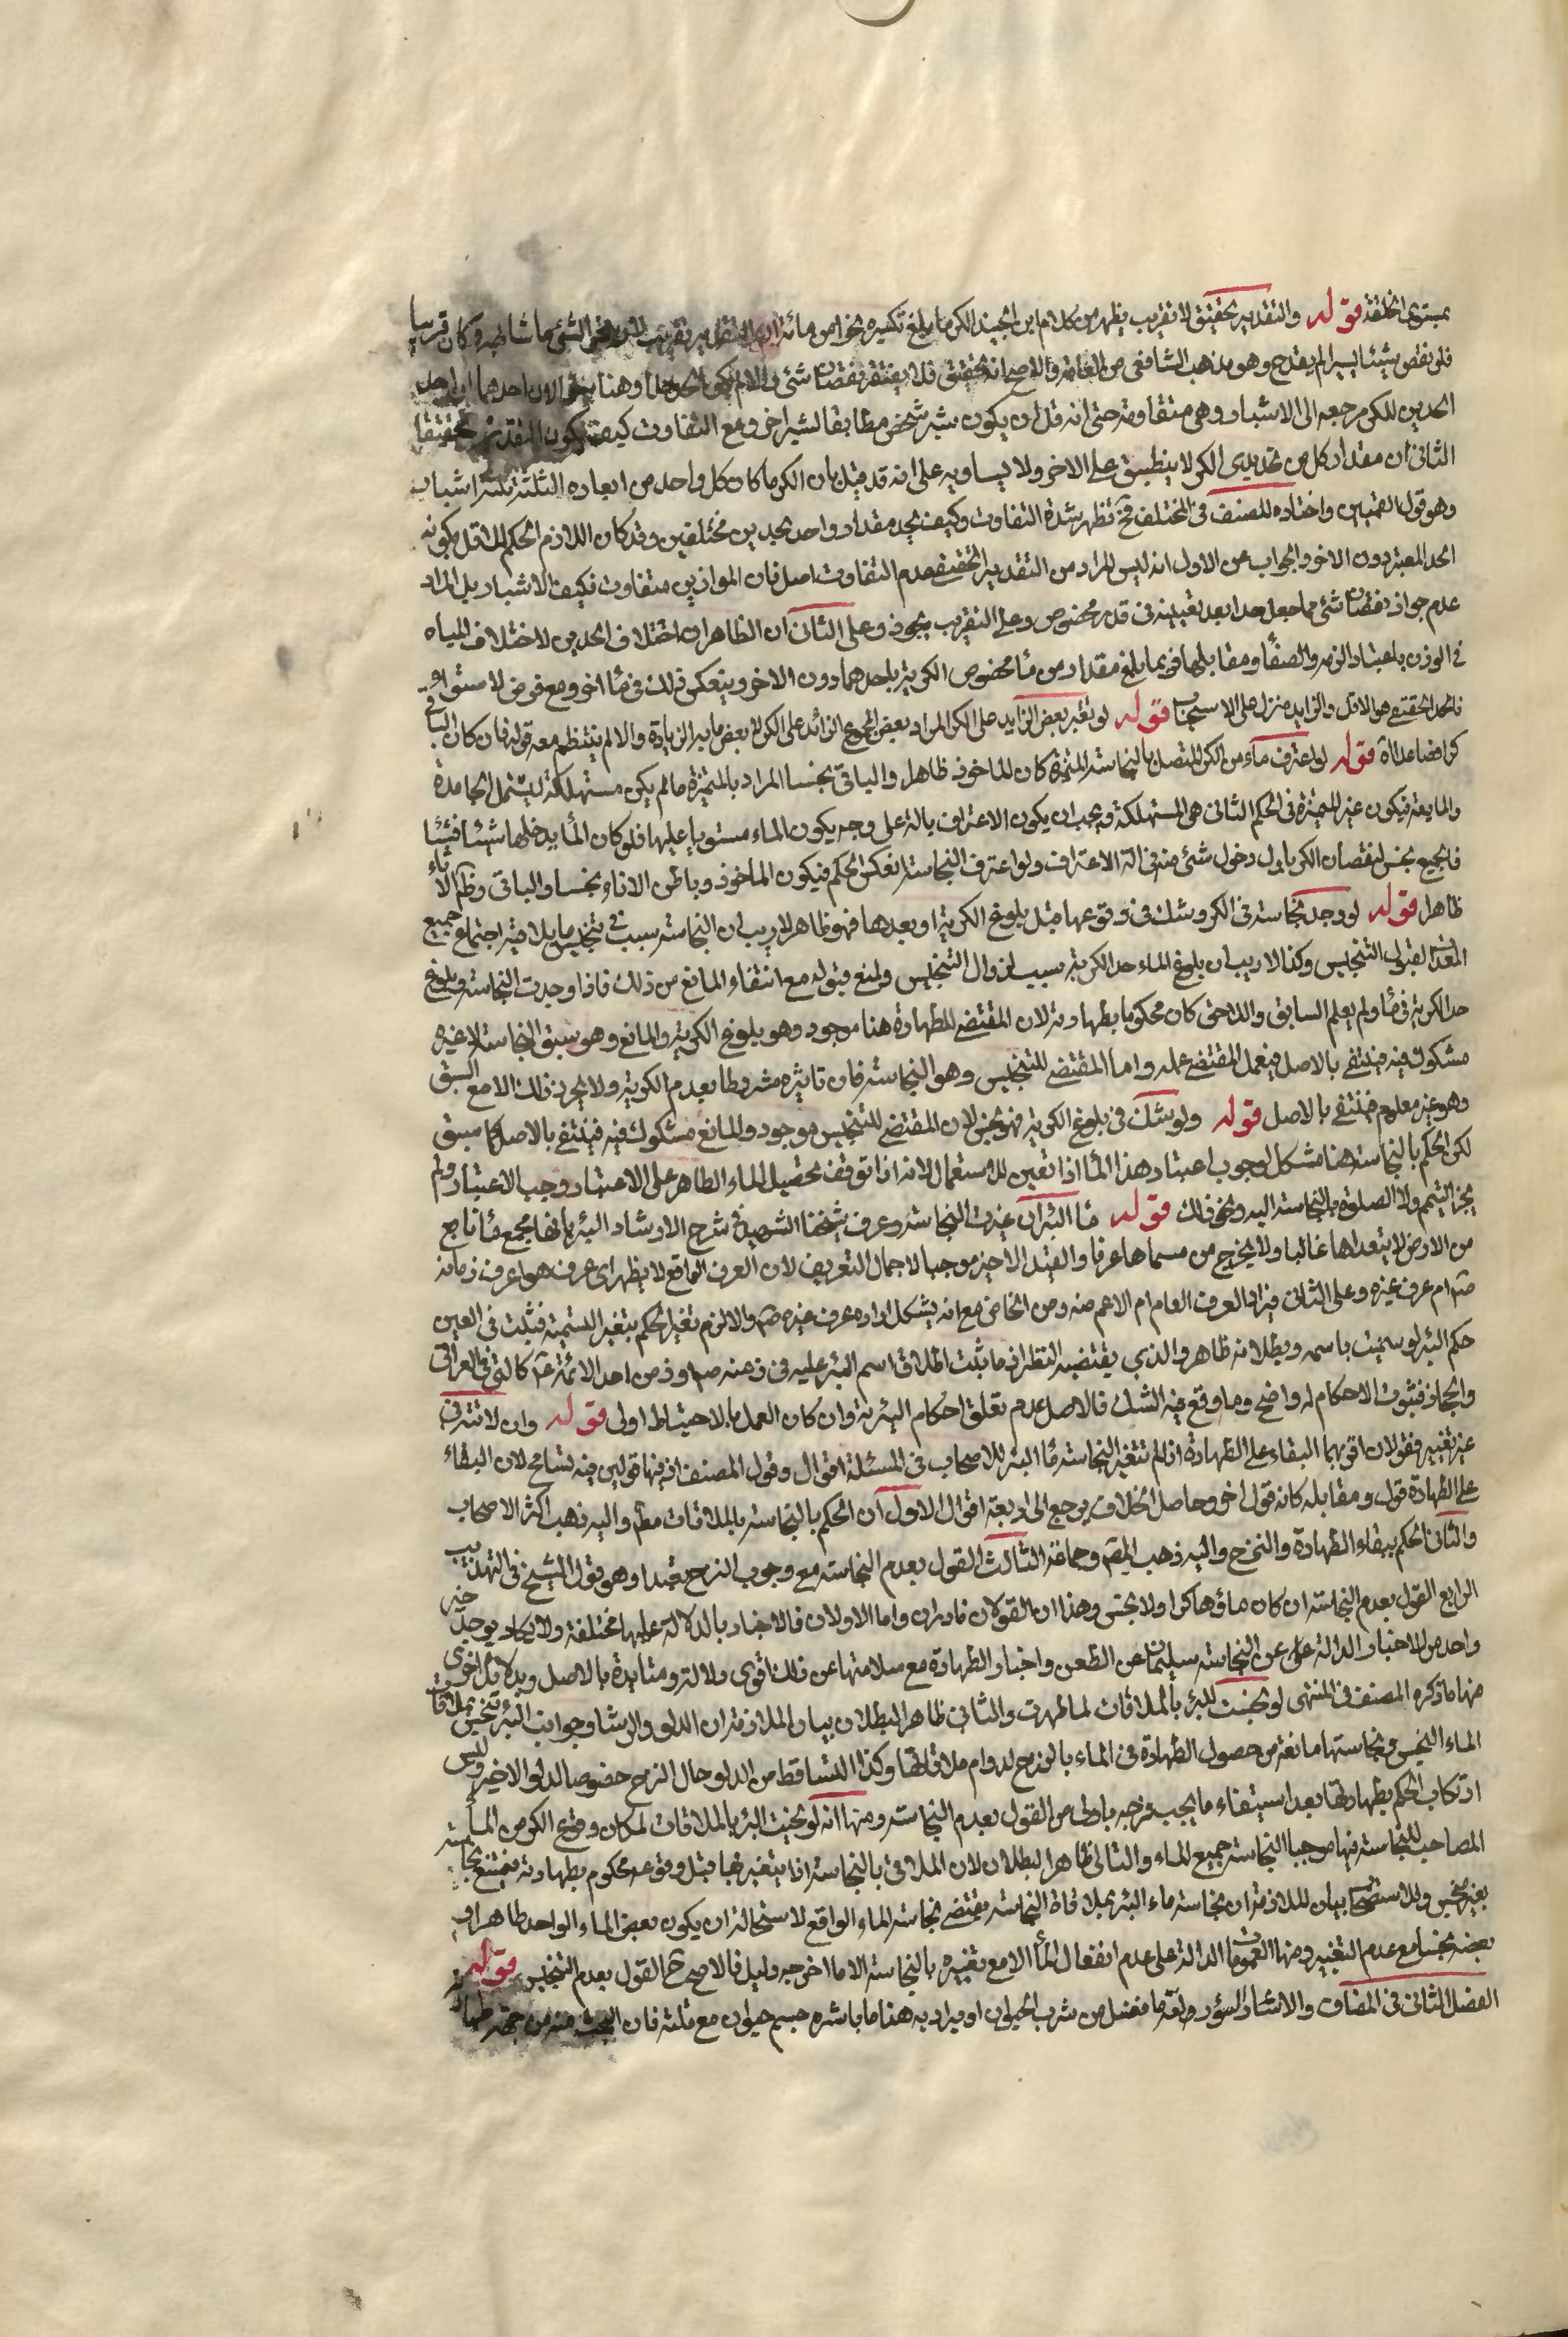 بمستوى الخلقة قوله والتقدير تحقيق لا تقريب يظهر من كلام ابن الجنيد الكر ما بلغ تكسيره نحوا من مائة ان التقدير تقريب لان نحو الشئ ما شابهه وكان قريبا
فلو نقص شيئا يسيرا لم يقدح وهو مذهب الشافعي من العامة والاصح انه تحقيق فلا يفتقر نقصان شئ والا لم يكن الحد حدا وهنا بحثان احدهما ان احد
الحدين للكر مرجعه الى الاشبار وهي متفاوتة حتى انه قل ان يكون شبر شخص مطابقا لشبر اخر ومع التفاوت كيف يكون التقدير تحقيقا
الثاني ان مقدار كل من تحديدى الكر لا ينطبق على الاخر ولا يساويه على انه قد قيل بان الكر ما كان كل واحد من ابعاده الثلثة ثلثة اشبار
وهو قول القميين واختاره المصنف في المختلف فح تظهر شدة التفاوت وكيف يحد مقدار واحد بحدين مختلفين وقد كان اللازم الحكم للاقل بكونه
الحد المعتبر دون الاخر والجواب عن الاول انه ليس المراد من التقدير التحقيقي عدم التفاوت اصلا فان الموازين متفاوت فكيف الاشبار بل المراد
عدم جواز نقصان شئ مما جعل حدا بعد تعيينه في قدر مخصوص وعلى التقريب يجوز وعلى الثاني ان الظاهر ان اختلاف الحدين لاختلاف المياه
في الوزن باعتبار الرقة والصفا ومقابلهما فربما بلغ مقدار من ماء مخصوص الكرية باحدهما دون الاخر وينعكس ذلك في ماء اخر ومع فرض لا
فالحد الحقيقي هو الاقل والزايد منزل على الاستحباب قوله لو تغير بعض الزايد على الكر المراد بعض المجموع الزائد على الكر لا بعض ما به الزيادة والا لم ينتظم معه قوله فان كان الباقي
كرا فصاعدا اه قوله لو اغترف ماء من الكر المتصل بالنجاسة المتميزة كان المأخوذ طاهرا والباقي نجسا المراد بالمتميزة ما لم يكن مستهلكة ليشمل الجامدة
والمايعة فيكون غير المتميزة في الحكم الثاني هي المستهلكة ويجب ان يكون الاغتراف بالة على وجه يكون الماء مستويا عليها فلو كان الماء يدخلها شيئا فشيئا
فالجميع نجس لنقصان الكر باول دخول شئ منه في الة الاغتراف ولو اغترف النجاسة انعكس الحكم فيكون المأخوذ وباطن الاناء نجسا والباقي وظهر الاناء
طاهرا قوله لو وجد نجاسة في الكر وشك في وقوعها قبل بلوغ الكرية او بعدها فهو طاهر لا ريب ان النجاسة سبب في تنجيس ما يلاقيه اجتماع جميع
المعدات لقبول التنجيس وكذا لا ريب ان بلوغ الماء حد الكرية سبب لزوال التنجيس ولمنع قبوله مع انتفاء المانع من ذلك فاذا وجدت النجاسة وبلوغ
حد الكرية في ماء ولم يعلم السابق واللاحق كان محكوما بطهارته لان المقتضي للطهارة هنا موجود وهو بلوغ الكرية والمانع وهو سبق النجاسة لا غيره
مشكوك فيه فينتفي بالاصل فيعمل المقتضي عمله واما المقتضي للتنجيس وهو النجاسة فان تاثيره مشروط بعدم الكرية ولا يجري ذلك الا مع السبق
وهو غير معلوم فينتفي بالاصل قوله ولو شك في بلوغ الكرية فهو نجس لان المقتضي للتنجيس موجود والمانع مشكوك فيه فينتفي بالاصل كما سبق
لكن الحكم بالنجاسة هنا مشكل لوجوب اعتبار هذا الماء اذا تعين للاستعمال لانه اذا توقف تحصيل الماء الطاهر على الاعتبار وجب الاعتبار ولم
يجز التيمم ولا الصلوة بالنجاسة اليه ونحو ذلك قوله ماء البئر ان غيرت النجاسة وعرف شيخنا الشهيد في شرح الارشاد البئر بانها مجمع ماء نابع
من الارض لا يتعداها غالبا ولا يخرج عن مسماها عرفا والقيد الاخير موجب لاجمال التعريف لان العرف الواقع لا يظهر اى عرف هو اعرف زمانه
ص ام عرف غيره وعلى الثاني فيراد العرف العام ام الاعم منه ومن الخاص مع انه يشكل اراده عرف غيره ص والا لزم تغير الحكم بتغير التسمية فيثبت في العين
حكم البئر لو سميت باسمه وبطلانه ظاهر والذي يقتضيه النظر ان ما ثبت اطلاق اسم البئر عليه في زمنه ص او زمن احد الائمة ع كالتي في العراق
والحجاز فثبوت الاحكام له واضح وما وقع فيه الشك فالاصل عدم تعلق احكام البئر به وان كان العمل بالاحتياط اولى قوله وان لاقته من
غير تغيير فقولان اقويهما البقاء على الطهارة اذا لم تتغير النجاسة ماء البئر للاصحاب في المسئلة اقوال وقول المصنف ان فيها قولين فيه تسامح لان البقاء
على الطهارة قول ومقابله كانه قول اخر وحاصل الخلاف يرجع الى اربعة اقوال الاول ان الحكم بالنجاسة بالملاقات مطلقا واليه ذهب اكثر الاصحاب
والثاني الحكم ببقاء الطهارة والنزح واليه ذهب المص وجماعة الثالث القول بعدم النجاسة مع وجوب النزح تعبدا وهو قول الشيخ في التهذيب
الرابع القول بعدم النجاسة ان كان ماؤها كرا ولا نجس وهذان القولان نادران واما الاولان فالاخبار بالدلالة عليهما مختلفة ولا يكاد يوجد خبر
واحد من الاخبار الدالة على النجاسة سليما عن الطعن واخبار الطهارة مع سلامتها عن ذلك اقوى دلالة ومتايدة بالاصل وبدلائل اخرى
منها ما ذكره المصنف في المنتهى لو نجست البئر بالملاقات لما طهرت والثاني ظاهر البطلان بيان الملازمة ان الدلو والرشا وجوانب البئر تنجس بملاقات
الماء النجس ونجاستها مانعة من حصول الطهارة في الماء بالنزح لدوام ملاقاتها وكذا المتساقط من الدلو حال النزح خصوصا الدلو الاخير وليس
ارتكاب الحكم بطهارتها بعد استيفاء ما يجب نزحه باولى من القول بعدم النجاسة ومنها انه لو نجست البئر بالملاقات لمكان وقوع الكر من الماء
المصاحب للنجاسة فيها موجبا النجاسة جميع الماء والتالي ظاهر البطلان لان الملاقي بالنجاسة اذا يتغير بها قبل وقوعه محكوم بطهارته فيمتنع نجاسته
بغير منجس وللاستصحاب بيان الملازمة ان نجاسة ماء البئر بملاقاة النجاسة مقتضي نجاسة الماء الواقع لاستحالة ان يكون بعض الماء الواحد طاهرا و
بعضه نجسا مع عدم التغيير ومنها العمومات الدالة على عدم انفعال الماء الا مع تغيره بالنجاسة الا ما اخرجه دليل فالاصح ح القول بعدم التنجيس قوله
الفصل الثاني في المضاف والاسئار السؤر لغة ما فضل من شرب الحيوان او يراد به هنا ما باشره جسم حيوان مع قلته فان البحث فيه من جهة طهارة